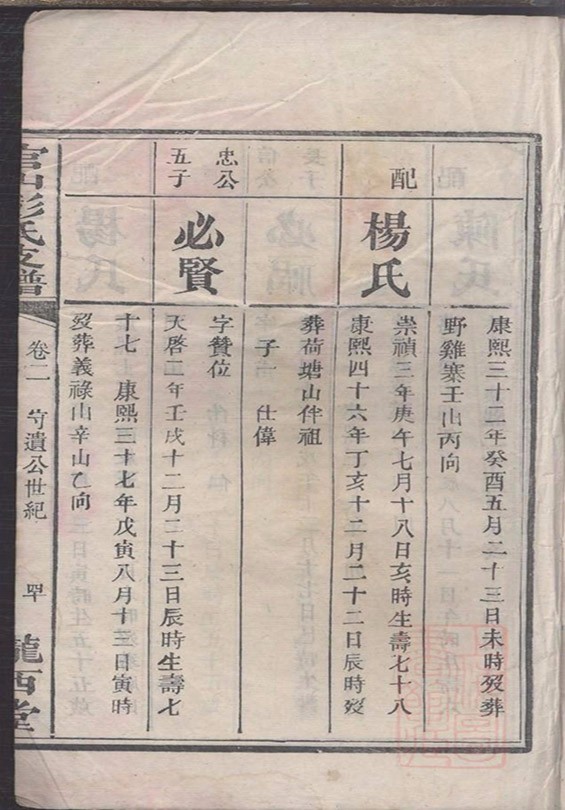 康熙三十二年癸酉五月二十三日未時歿葬
野雞寨壬山丙向
配
楊氏
崇禎三年庚午七月十八日亥時生壽七十八
康熙四十六年丁亥十二月二十二日辰時歿
葬荷塘山伴祖
子一 仕偉
忠公
五子
必賢
字贊位
天啓二年壬戌十二月二十三日辰時生壽七
十七 康熙三十七年戊寅八月十三日寅時
歿葬義祿山辛山乙向
官山彭氏支譜
卷二 守遺公世紀
隴西堂